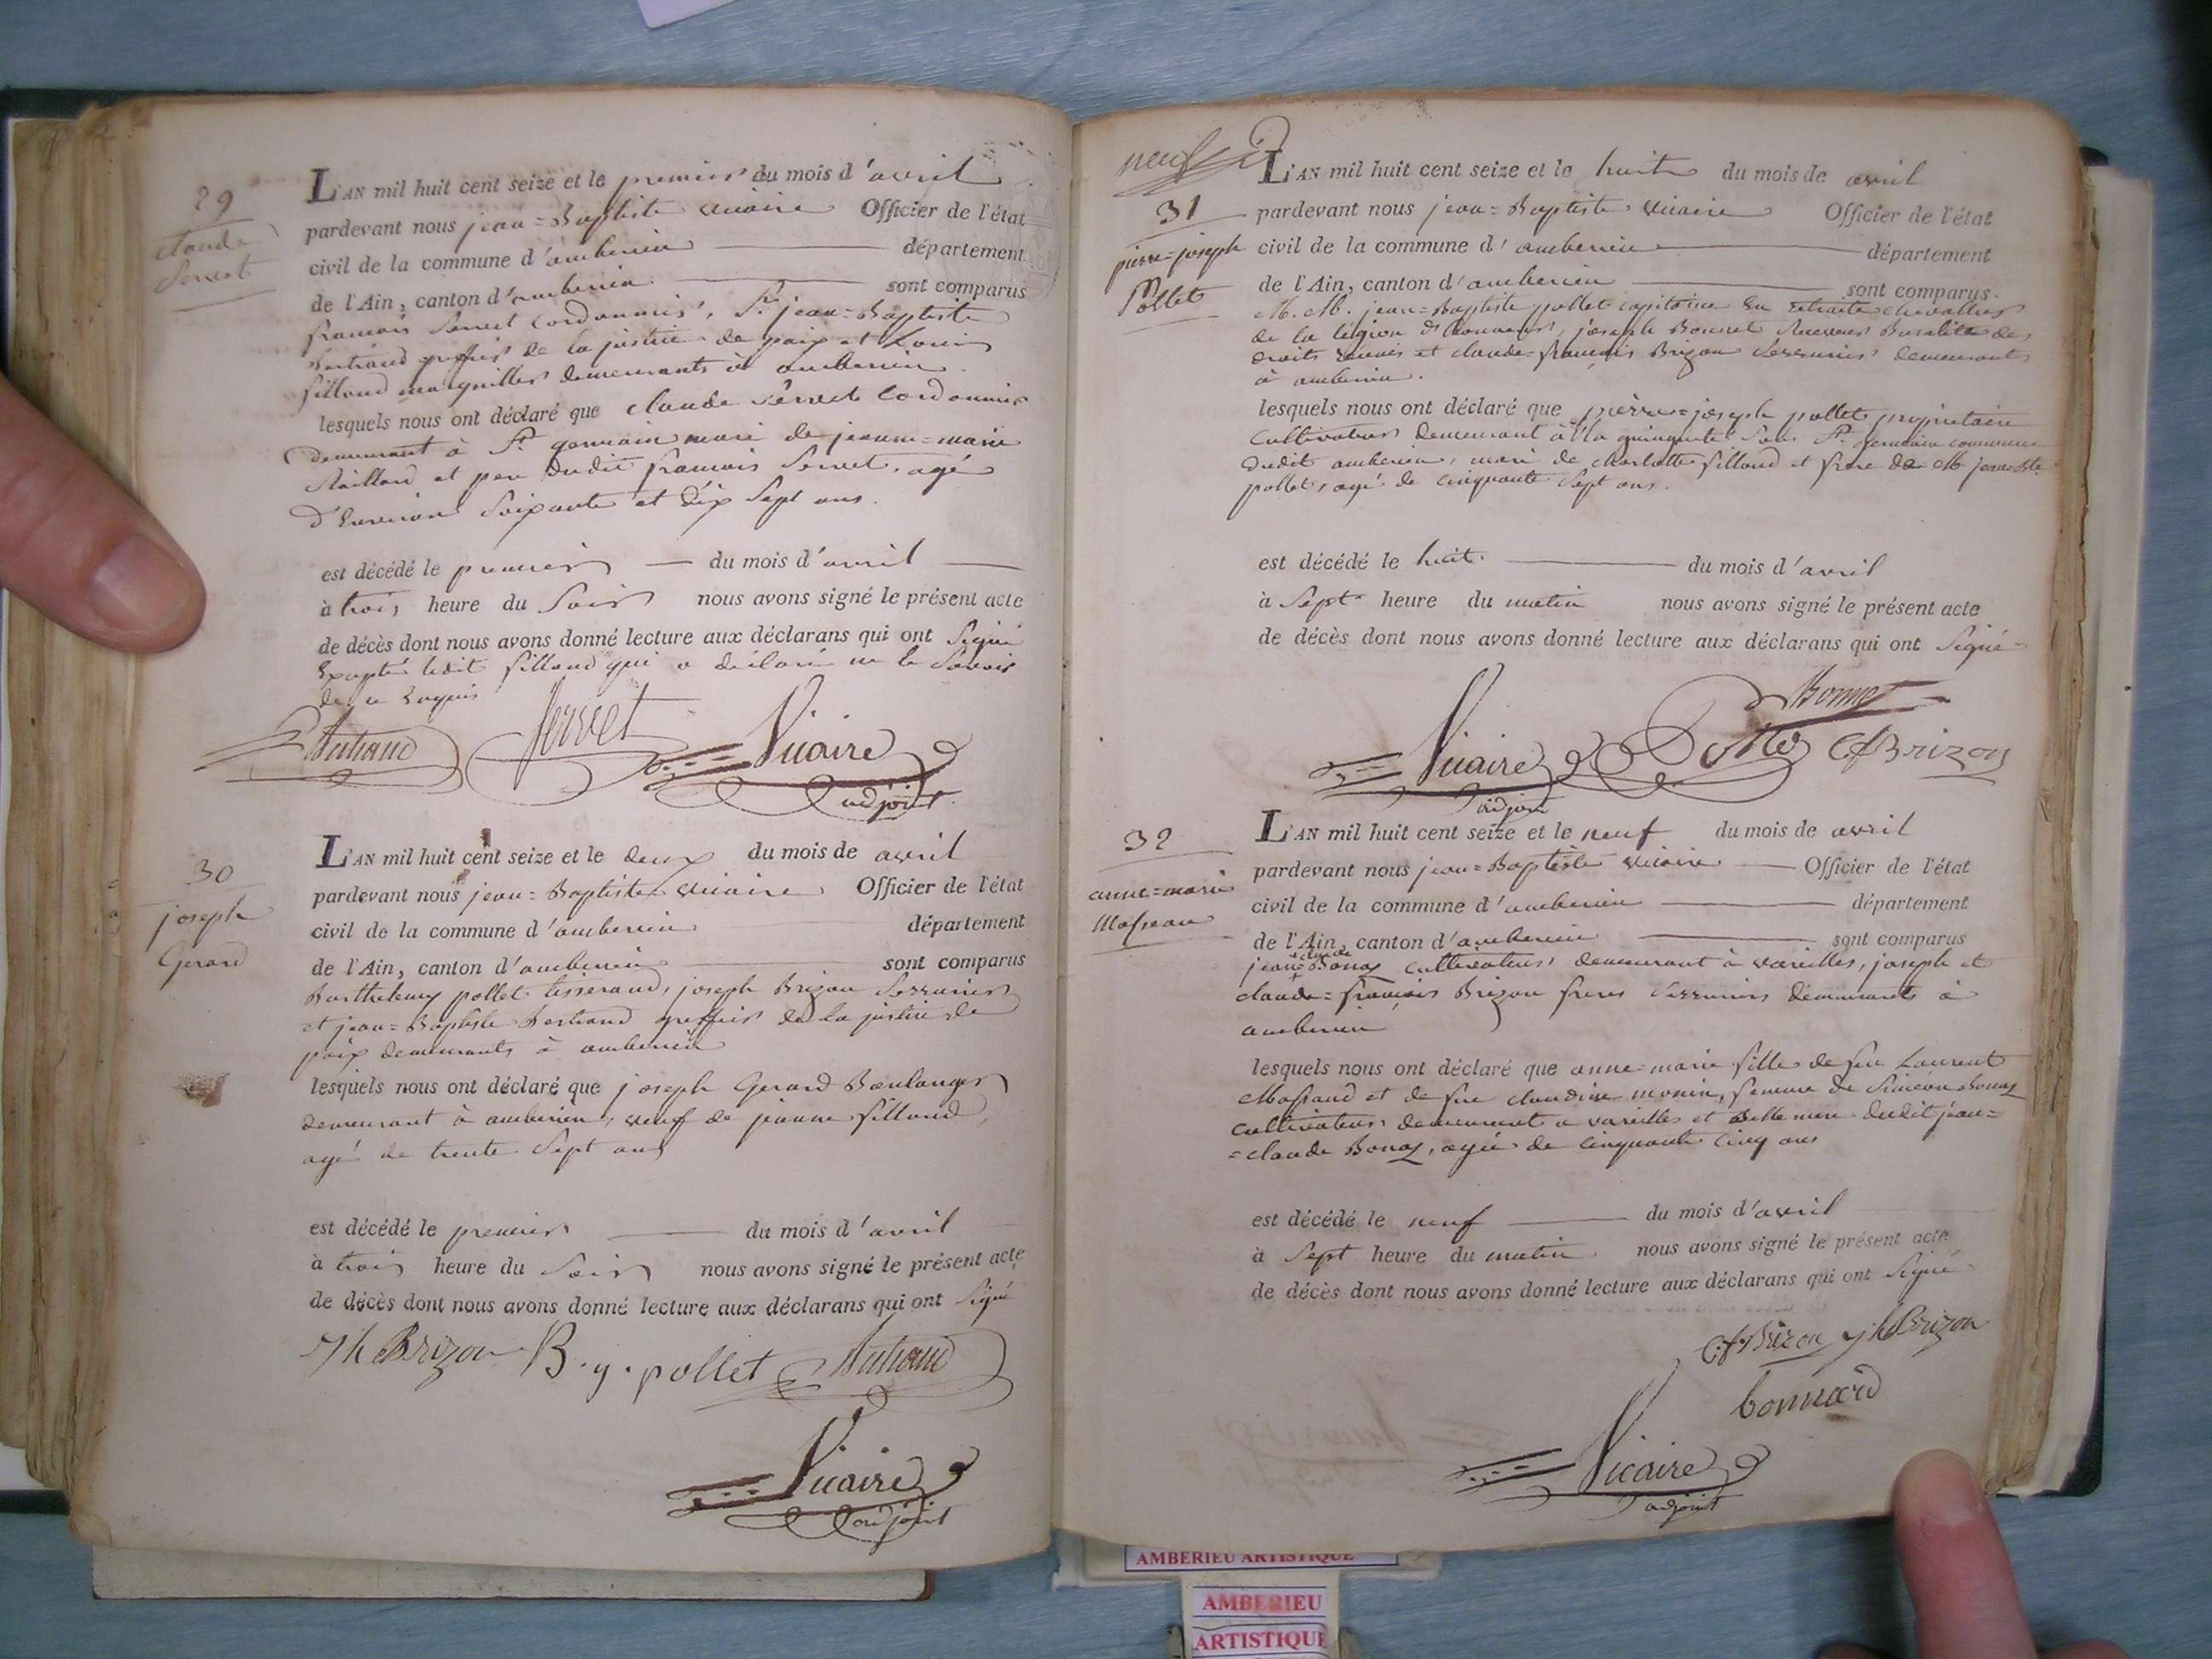 29
claude
Servet
L'AN mil huit cent seize et le premier du mois d'avril
pardevant nous jean=Baptiste vicaire Officier de l'état
civil de la commune d'amberieu département
de l'Ain, canton d'amberieu sont comparus
francois Servet cordonnier, Sr. jean=Baptiste
Bertrand greffier de la justice de paix et Louis
fillond marguillier demeurants à amberieu
lesquels nous ont déclaré que claude Servet cordonnier
demeurant à St. germain mari de jeanne=marie
et pere dudit francois Servet, agé
d'Environ Soixante et dix Sept ans.
est décédé le premier du mois d'avril
à trois heure du Soir nous avons signé le présent acte
de décès dont nous avons donné lecture aux déclarans qui ont Signé
Excepté ledit fillond qui a déclaré ne le Savoir
de ce Enquis
Bertrand Servet Vicaire
adjoint
30
joseph
Gerard
L'AN mil huit cent seize et le deux du mois de avril
pardevant nous jean=Baptiste vicaire Officier de l'état
civil de la commune d'amberieu département
de l'Ain, canton d'amberieu sont comparus
Barthelemy pollet tisserand, joseph Brizon Serrurier
et jean=Baptiste Bertrand greffier de la justice de
paix demeurants à amberieu
lesquels nous ont déclaré que joseph Gerard Boulanger
demeurant à amberieu, veuf de jeanne fillond,
agé de trente Sept ans
est décédé le premier du mois d'avril
à trois heure du Soir nous avons signé le présent acte
de décès dont nous avons donné lecture aux déclarans qui ont Signé
jh Brizon B.y.pollet Bertrand
Vicaire
adjoint
neuf
31
pierre=joseph
Pollet
L'AN mil huit cent seize et le huit du mois de avril
pardevant nous jean=Baptiste vicaire Officier de l'état
civil de la commune d'amberieu département
de l'Ain, canton d'amberieu sont comparus
M. M. jean=Baptiste pollet capitaine En retraite chevallier
de la légion d'honneur, joseph Bonnet Receveur Buraliste des
droits réunis et claude=francois Brizon Serrurier demeurants
à amberieu.
lesquels nous ont déclaré que pierre=joseph pollet propriétaire
cultivateur demeurant à la Sous St. germain commune
dudit amberieu, mari de charlotte fillond et frere de M jean=Bte
pollet, agé de cinquante Sept ans.
est décédé le huit du mois d'avril
à Sept heure du matin nous avons signé le présent acte
de décès dont nous avons donné lecture aux déclarans qui ont Signé
Bonnet
Vicaire Pollet CfBrizon
adjoint
32
anne=marie
Massean
L'AN mil huit cent seize et le neuf du mois de avril
pardevant nous jean=Baptiste vicaire Officier de l'état
civil de la commune d'amberieu département
de l'Ain, canton d'amberieu sont comparus
claude
jean=Bonaz cultivateur demeurant à vareilles, joseph et
claude=françois Brizon freres Serruriers demeurants à
amberieu
lesquels nous ont déclaré que anne=marie fille de feu Laurent
Massand et de feu claudine monin, femme de Siméon Bonaz
cultivateur demeurant a vareilles et Belle mere dudit jean=
=claude Bonaz, agée de cinquante cinq ans
est décédé le neuf du mois d'avril
à Sept heure du matin nous avons signé le présent acte
de décès dont nous avons donné lecture aux déclarans qui ont Signé
C.f.Brizon jhBrizon
bonnard
Vicaire
adjoint
AMBERIEU ARTISTIQUE
AMBERIEU
ARTISTIQUE